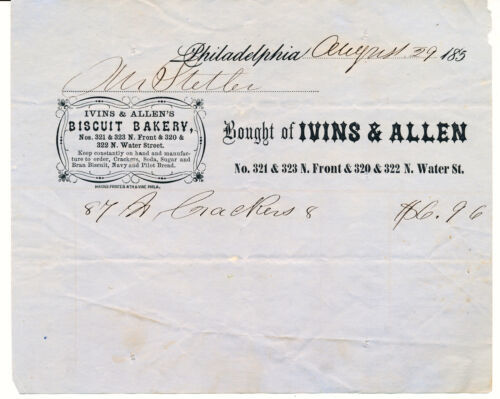 Philadelphia August 29 185
Mr Stetler
IVINS & ALLEN'S
BISCUIT BAKERY,
Nos. 321 & 323 N. Front & 320 &
322 N. Water Street.
Keep constantly on hand and manufac-
ture to order, Crackers, Soda, Sugar and
Bran Biscuit, Navy and Pilot Bread.
Bought of IVINS & ALLEN
No. 321 & 323 N. Front & 320 & 322 N. Water St.
87 Crackers 8 $6.96